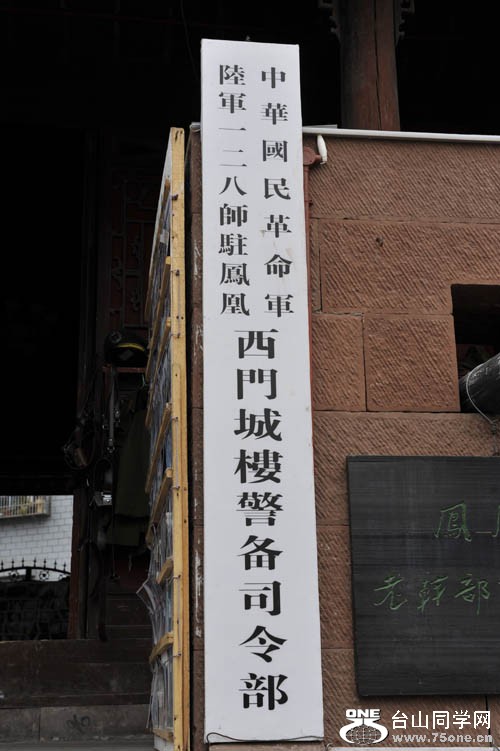 中華國民革命軍
陸軍一二八師駐鳳凰
西門城樓警备司令部
鳳
老幹部
ONE
台山同学网
www.75one.cn